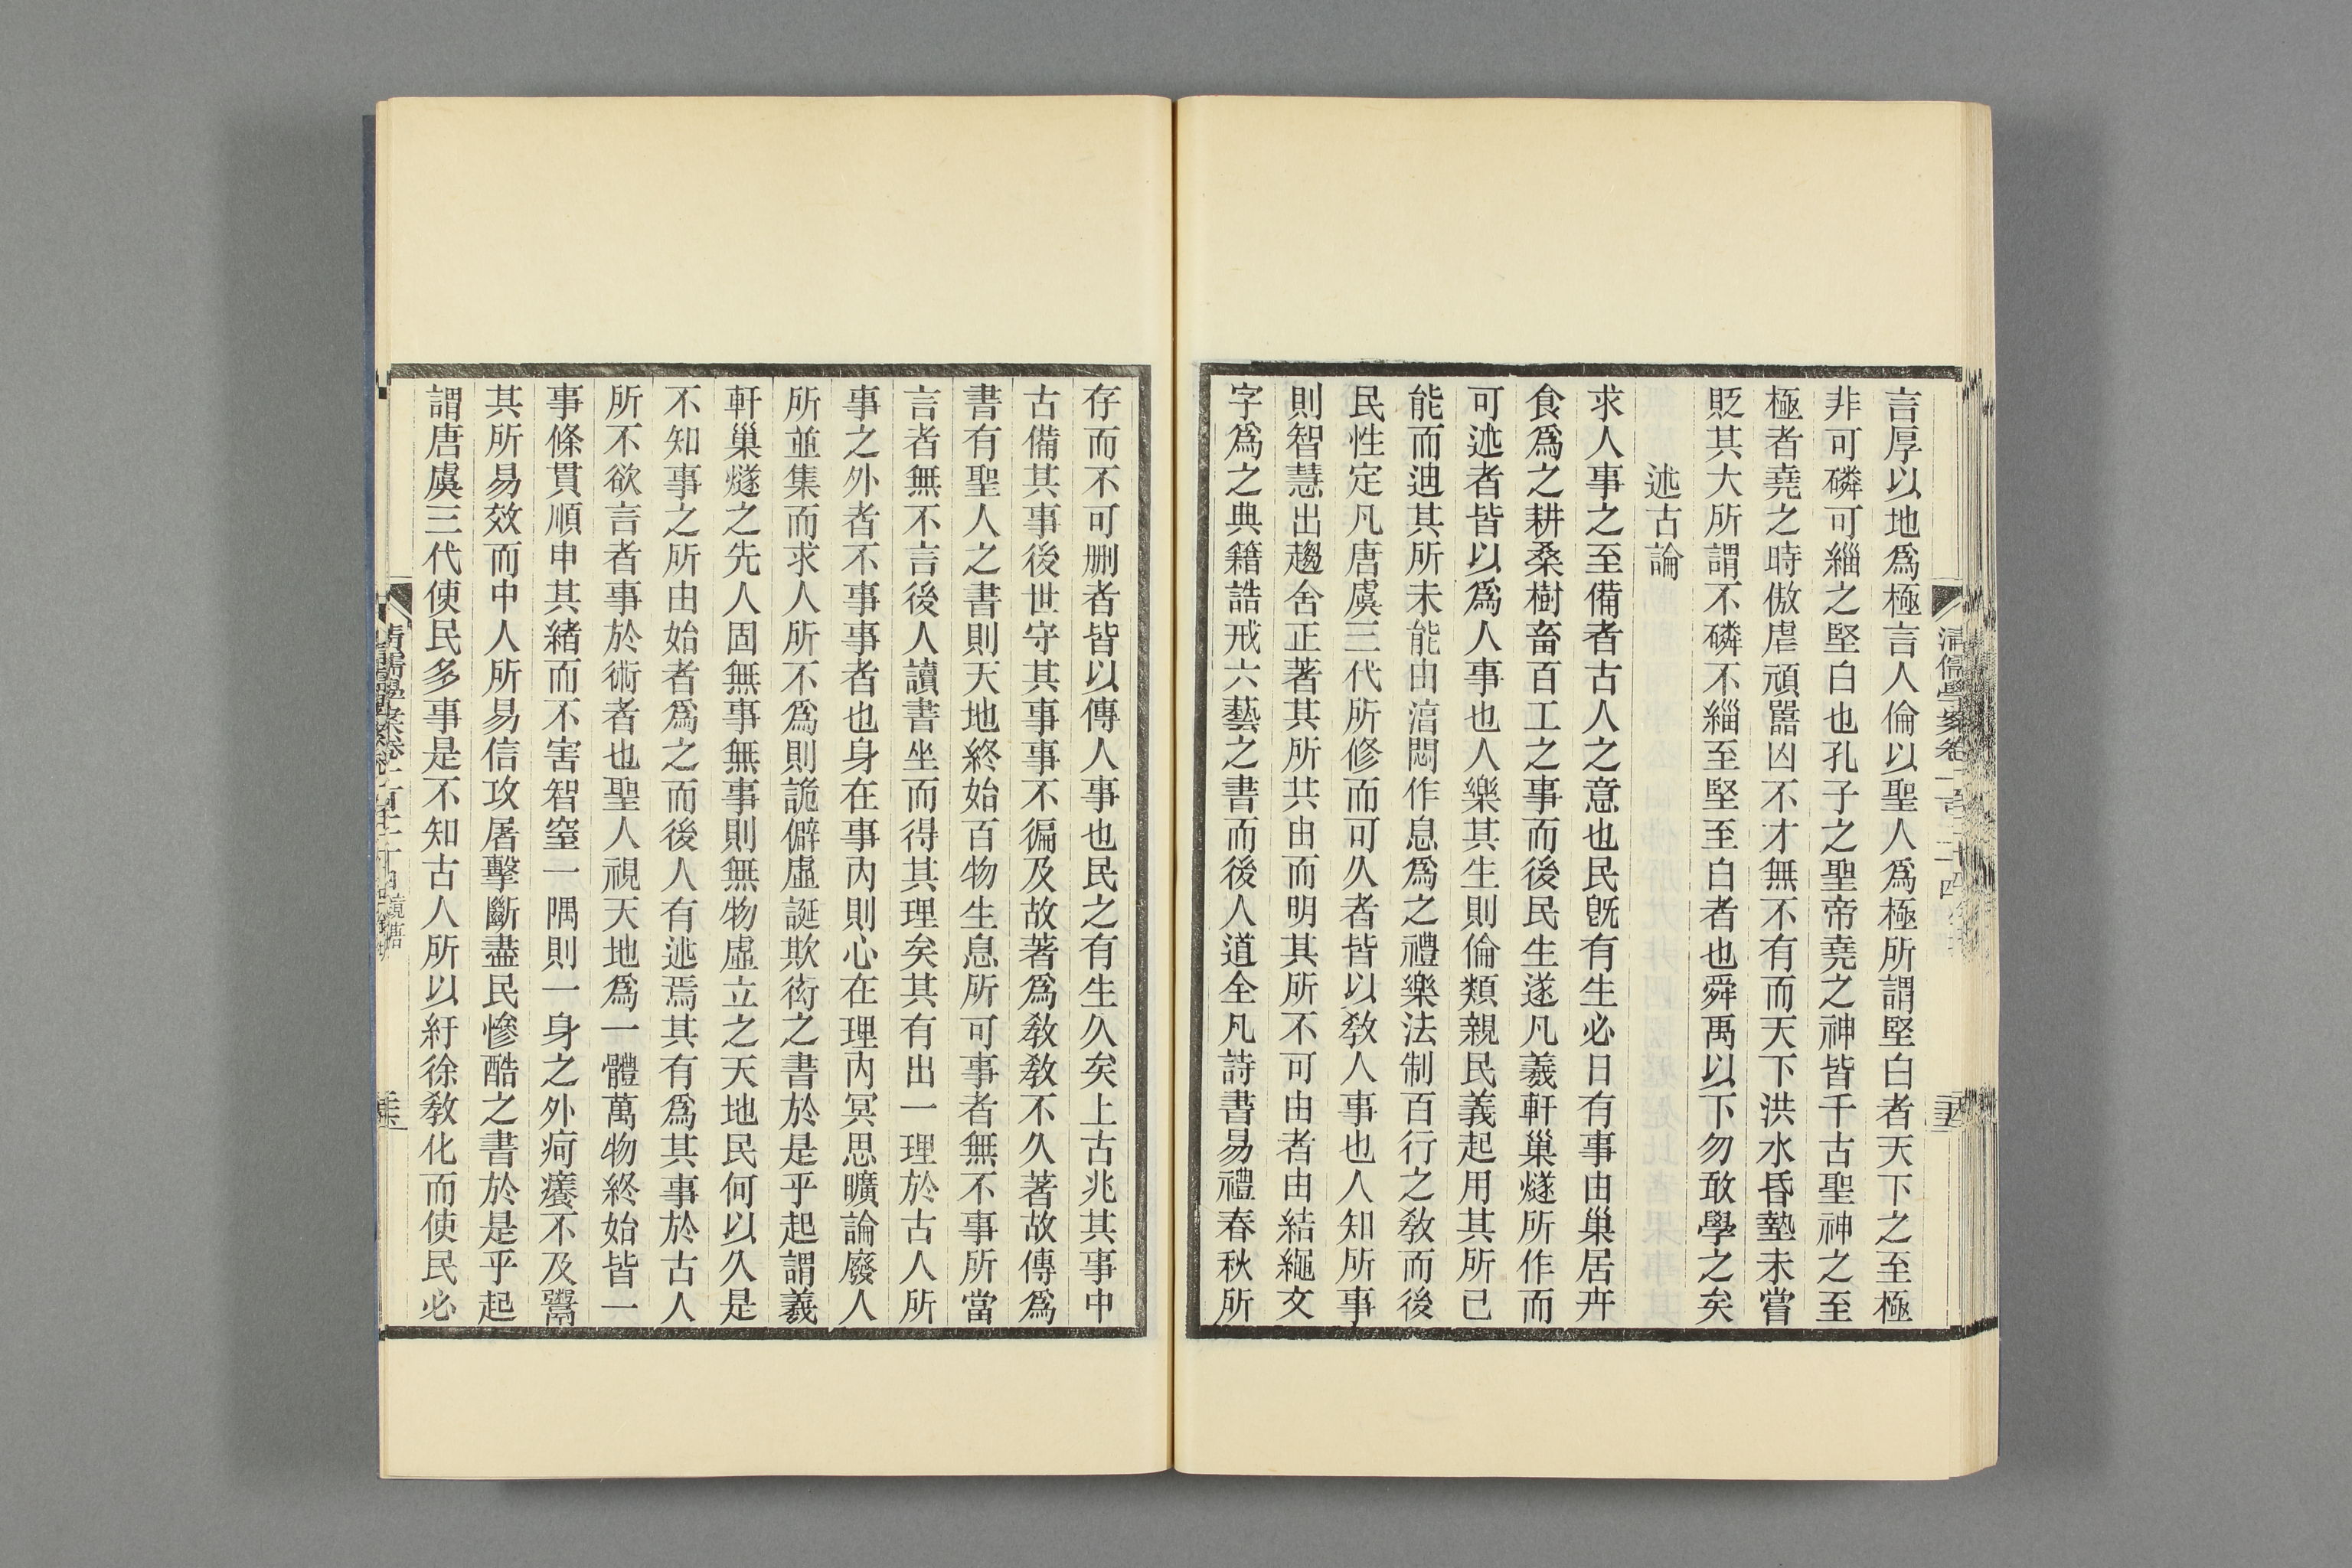 言厚以地爲極言人倫以聖人爲極所謂堅白者天下之至極
非可磷可緇之堅白也孔子之聖帝堯之神皆千古聖神之至
極者堯之時傲虐頑嚚凶不才無不有而天下洪水昏墊未嘗
貶其大所謂不磷不緇至堅至白者也舜禹以下勿敢學之矣
述古論
求人事之至備者古人之意也民旣有生必日有事由巢居卉
食爲之耕桑樹畜百工之事而後民生遂凡羲軒巢燧所作而
可述者皆以爲人事也人樂其生則倫類親民義起用其所已
能而迪其所未能由湻悶作息爲之禮樂法制百行之敎而後
民性定凡唐虞三代所修而可久者皆以敎人事也人知所事
則智慧出趨舍正著其所共由而明其所不可由者由結繩文
字爲之典籍誥戒六藝之書而後人道全凡詩書易禮春秋所
存而不可删者皆以傳人事也民之有生久矣上古兆其事中
古備其事後世守其事事不徧及故著爲敎敎不久著故傳爲
書有聖人之書則天地終始百物生息所可事者無不事所當
言者無不言後人讀書坐而得其理矣其有出一理於古人所
事之外者不事事者也身在事內則心在理內冥思曠論廢人
所並集而求人所不爲則詭僻虛誕欺衒之書於是乎起謂羲
軒巢燧之先人固無事無事則無物虛立之天地民何以久是
不知事之所由始者爲之而後人有述焉其有爲其事於古人
所不欲言者事於術者也聖人視天地爲一體萬物終始皆一
事條貫順申其緒而不害智窒一隅則一身之外疴癢不及鬻
其所易效而中人所易信攻屠擊斷盡民慘酷之書於是乎起
謂唐虞三代使民多事是不知古人所以紆徐敎化而使民必